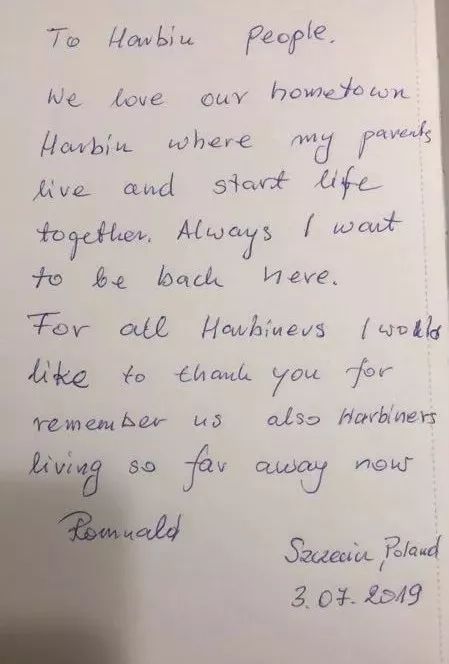 To Harbin People.
We love our hometown
Harbin where my parents
live and start life
together. Always I want
to be back here.
For all Harbiners I would
like to thank you for
remember us also Harbiners
living so far away now
Romuald
Szczecin, Poland
3.07.2019